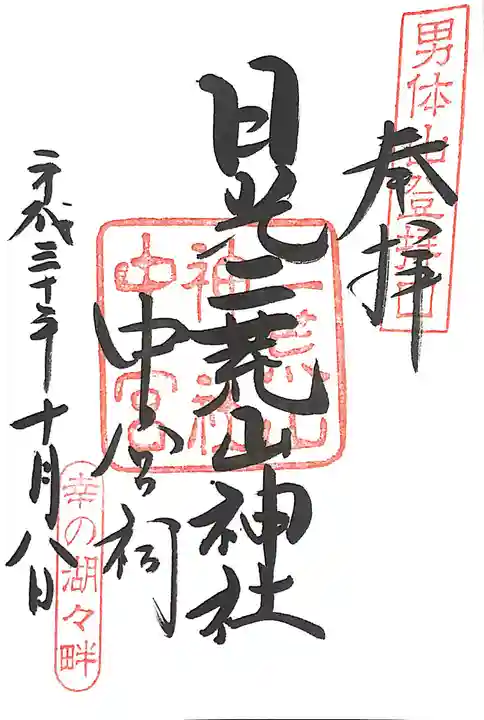 男体山登拝口
奉拝
日光二荒山神社
二荒山
神社
中宮
中宮祠
平成三十年十月八日
幸の湖々畔